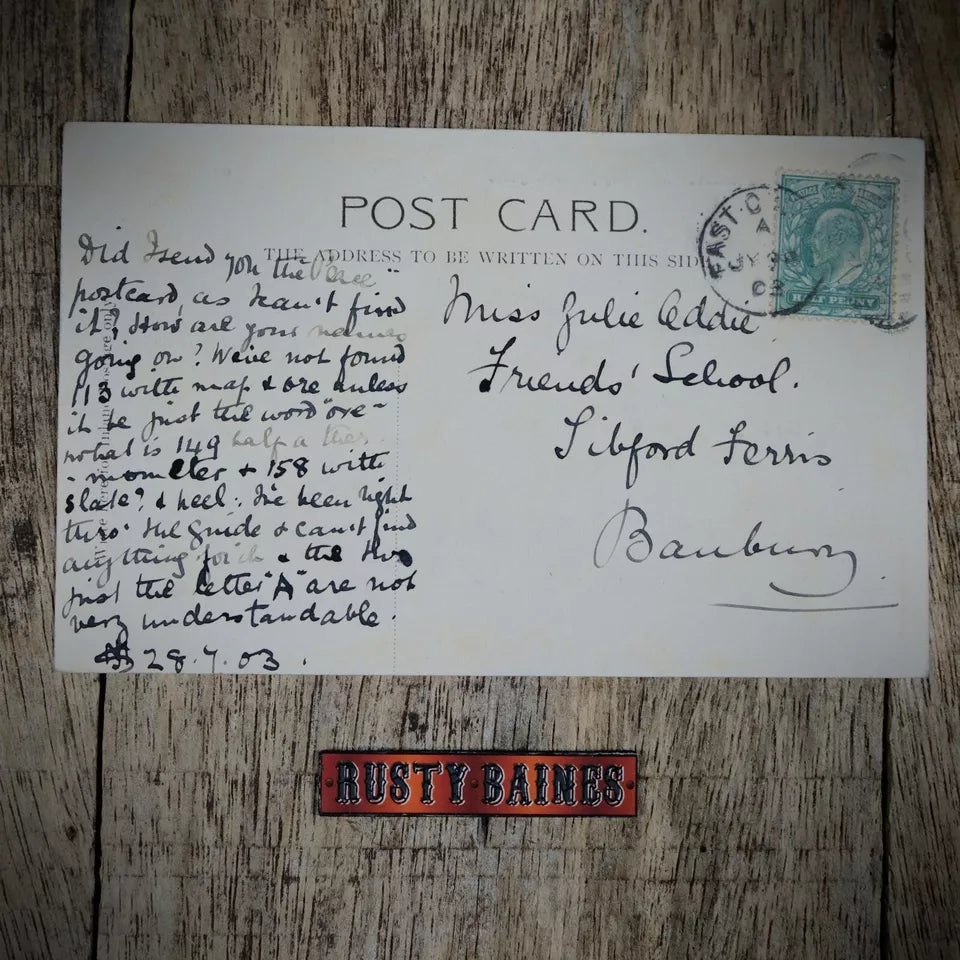 POST CARD.
THE ADDRESS TO BE WRITTEN ON THIS SIDE
EAST
A
JY
03
HALF PENNY
Did I send you the
postcard, as I can't find
it? How are your names
going on? We've not found
113 with map & ore unless
it be just the word "ore"
what is 149 half a ther
-mometer & 158 with
slate? & heel. I've been right
thro' the guide & can't find
anything for it & the two
just the letter "A" are not
very understandable.
28.7.03.
Miss Julie Addie
Friends' School.
Sibford Ferris
Banbury
RUSTY BAINES